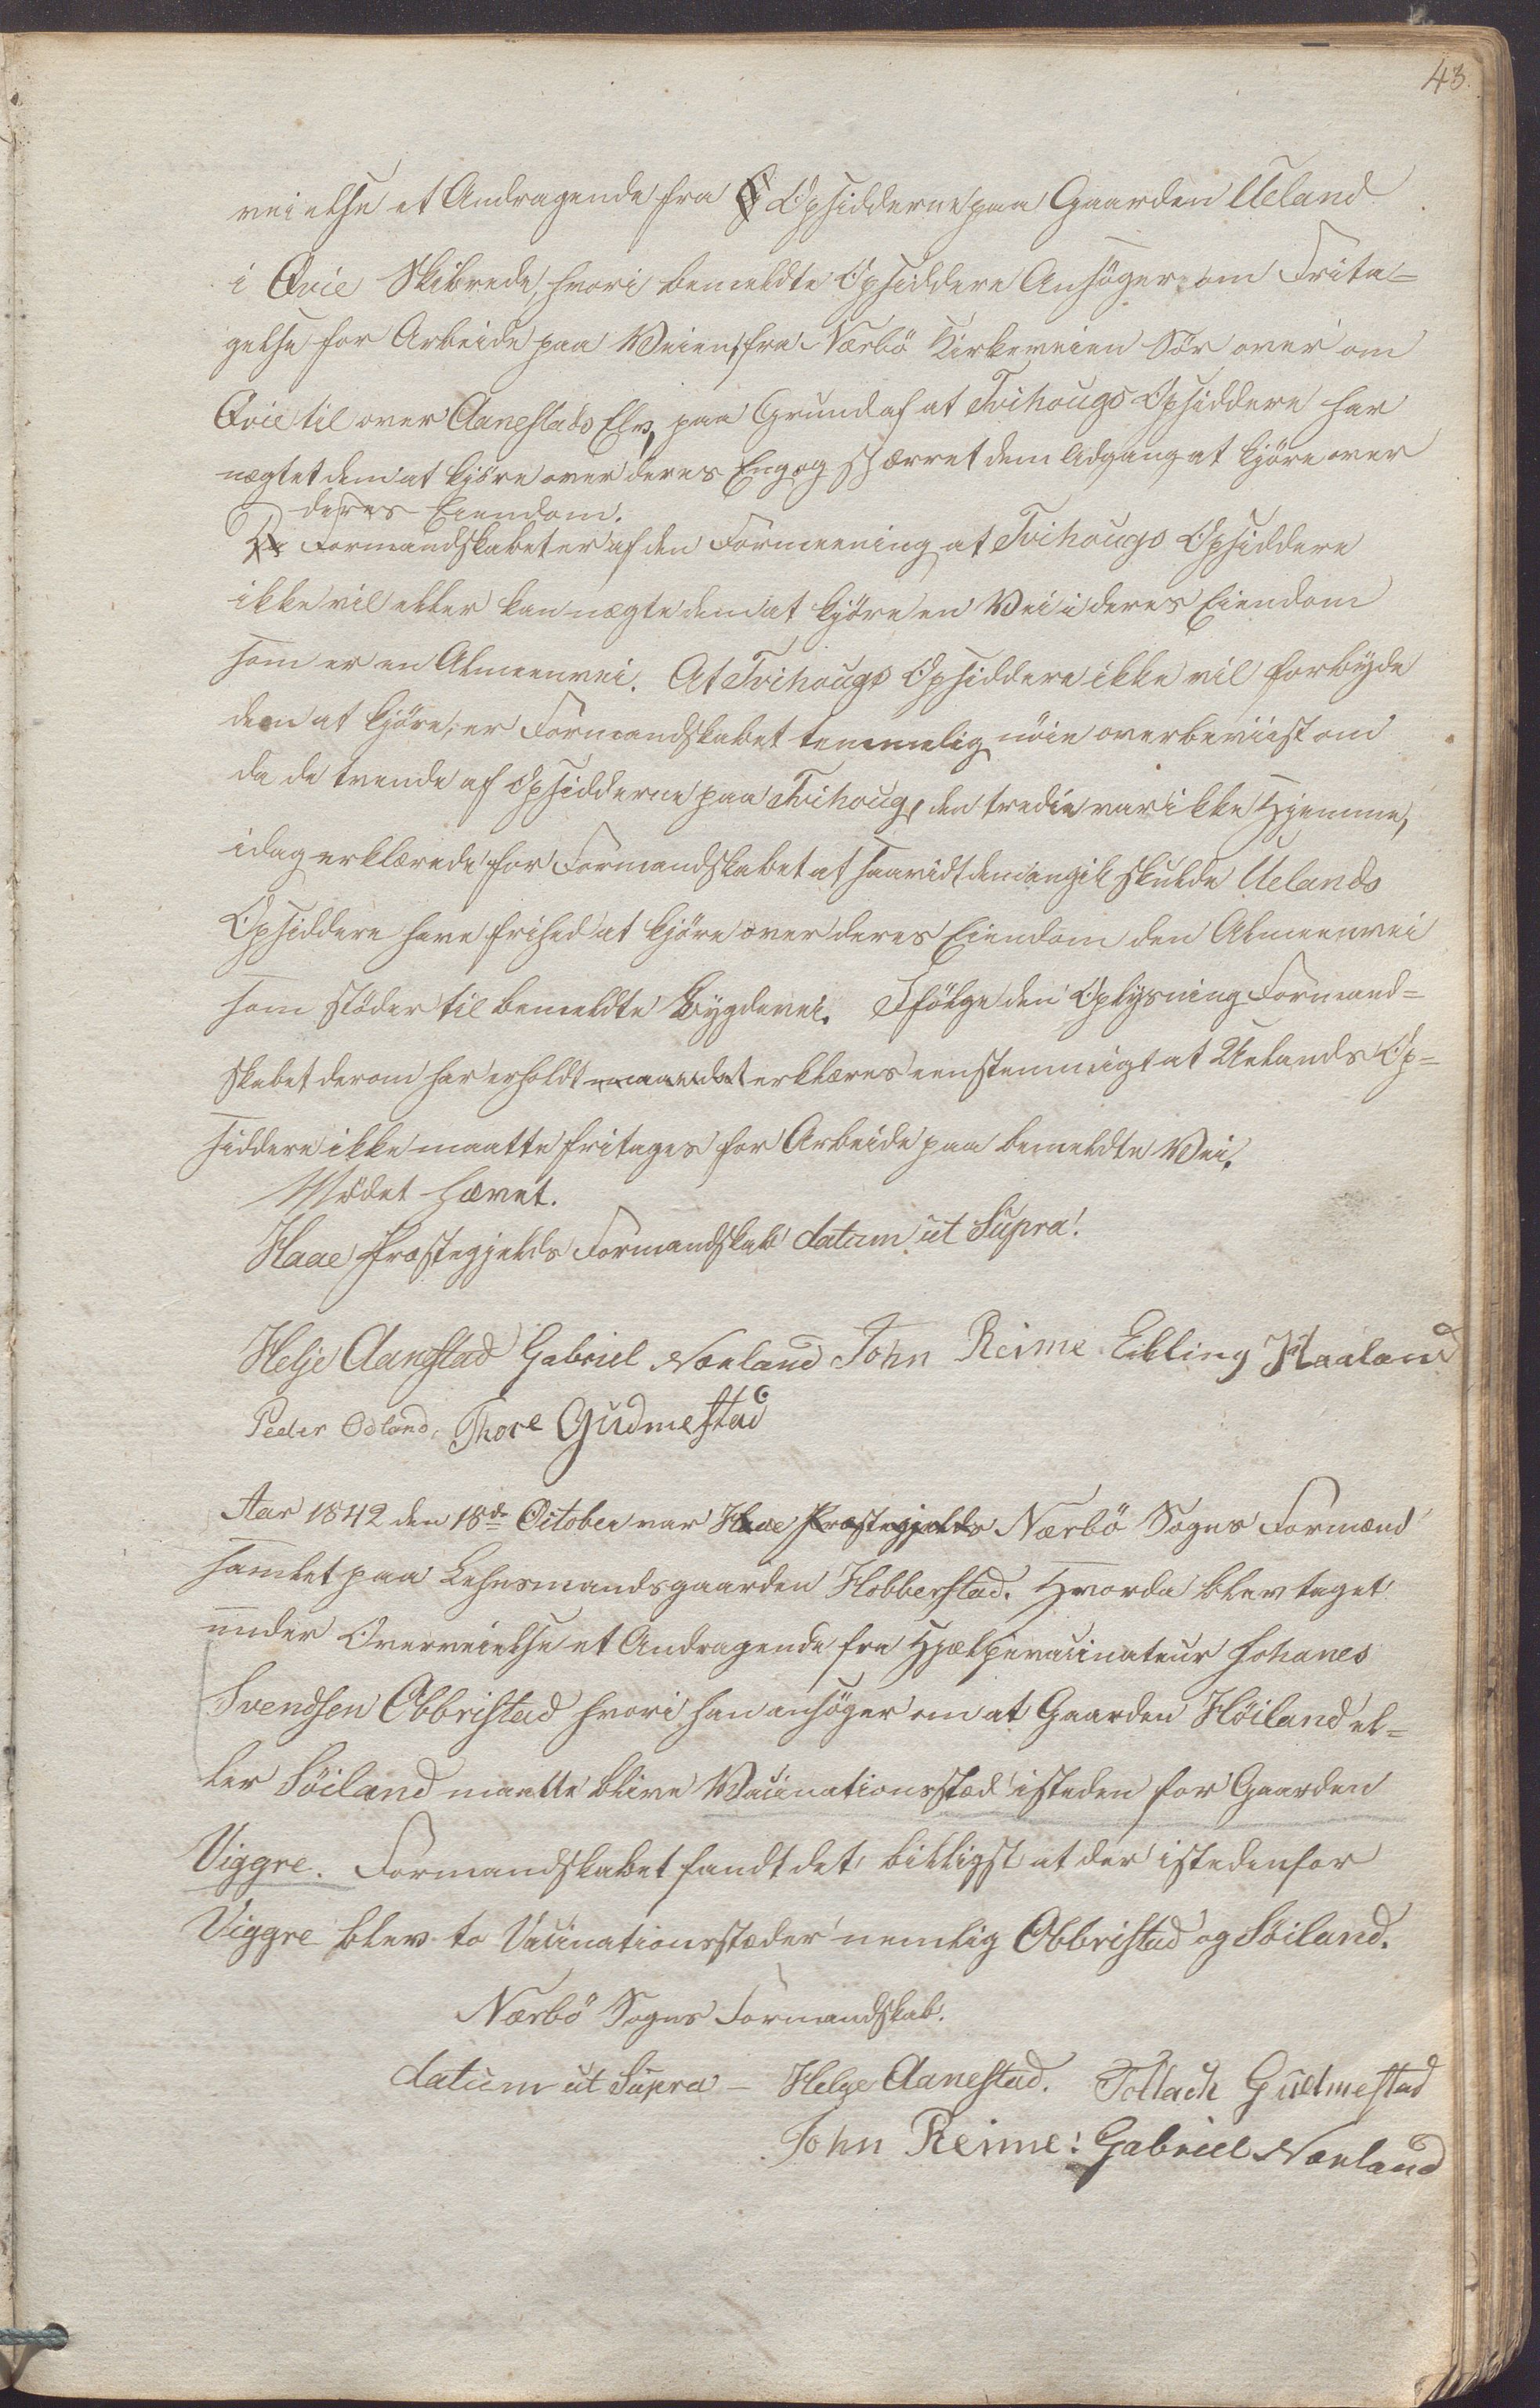 43.
veielse et Andragende fra Opsidderne paa Gaarden Ueland
i Qvie Skibrede, hvori bemeldte Opsiddere Ansöger om Frita-
gelse for Arbeide paa Veien fra Nærbö Kirkeveien Sör over om
Qvie til over Aanestads Elv, paa Grund af at Tvihougs Opsiddere har
nægtet dem at kjöre over deres Eng og spærret dem Adgang at kjöre over
deres Eiendom.
Formandskabet er af den Formeening at Tvihougs Opsiddere
ikke vil eller kan nægte dem at kjöre en Vei i deres Eiendom
som er en Almeenvei. At Tvihougs Opsiddere ikke vil forbyde
dem at kjöre, er Formandskabet temmelig nöie overbeviist om
da de tvende af Opsidderne paa Tvihoug, den tredie var ikke Hjemme,
idag erklærede for Formandskabet at saavidt dem angik skulde Uelands
Opsiddere have frihed at kjöre over deres Eiendom den Almeenvei
som stöder til bemeldte Bygdevei. Ifölge den Oplysning Formand-
skabet derom har erholdt erklæres eenstemmigt at Uelands Op-
siddere ikke maatte fritages for Arbeide paa bemeldte Vei.
Mödet hævet.
Haae Præstegjelds Formandskab datum ut Supra!
Helje Aanestad Gabriel Nærland John Reime Elling Haaland
Peder Ödland, Thore Gudmestad
Aar 1842 den 18de October var Haae Præstegjelds Nærbö Sogns Formænd
samlet paa Lehnsmandsgaarden Hobberstad. Hvorda blev taget
under Overveielse et Andragende fra Hjælpevacinateur Johanes
Svendsen Obbristad hvori han ansöger om at Gaarden Höiland el-
ler Söiland maatte blive Vacinationsstæd isteden for Gaarden
Viggre. Formandskabet fandt det billigst at der istedenfor
Viggre blev to Vacinationsstæder nemlig Obbristad og Söiland.
Nærbö Sogns Formandskab.
datum ut Supra - Helge Aanestad. Tollach Gudmestad
John Reime: Gabriel Nærland